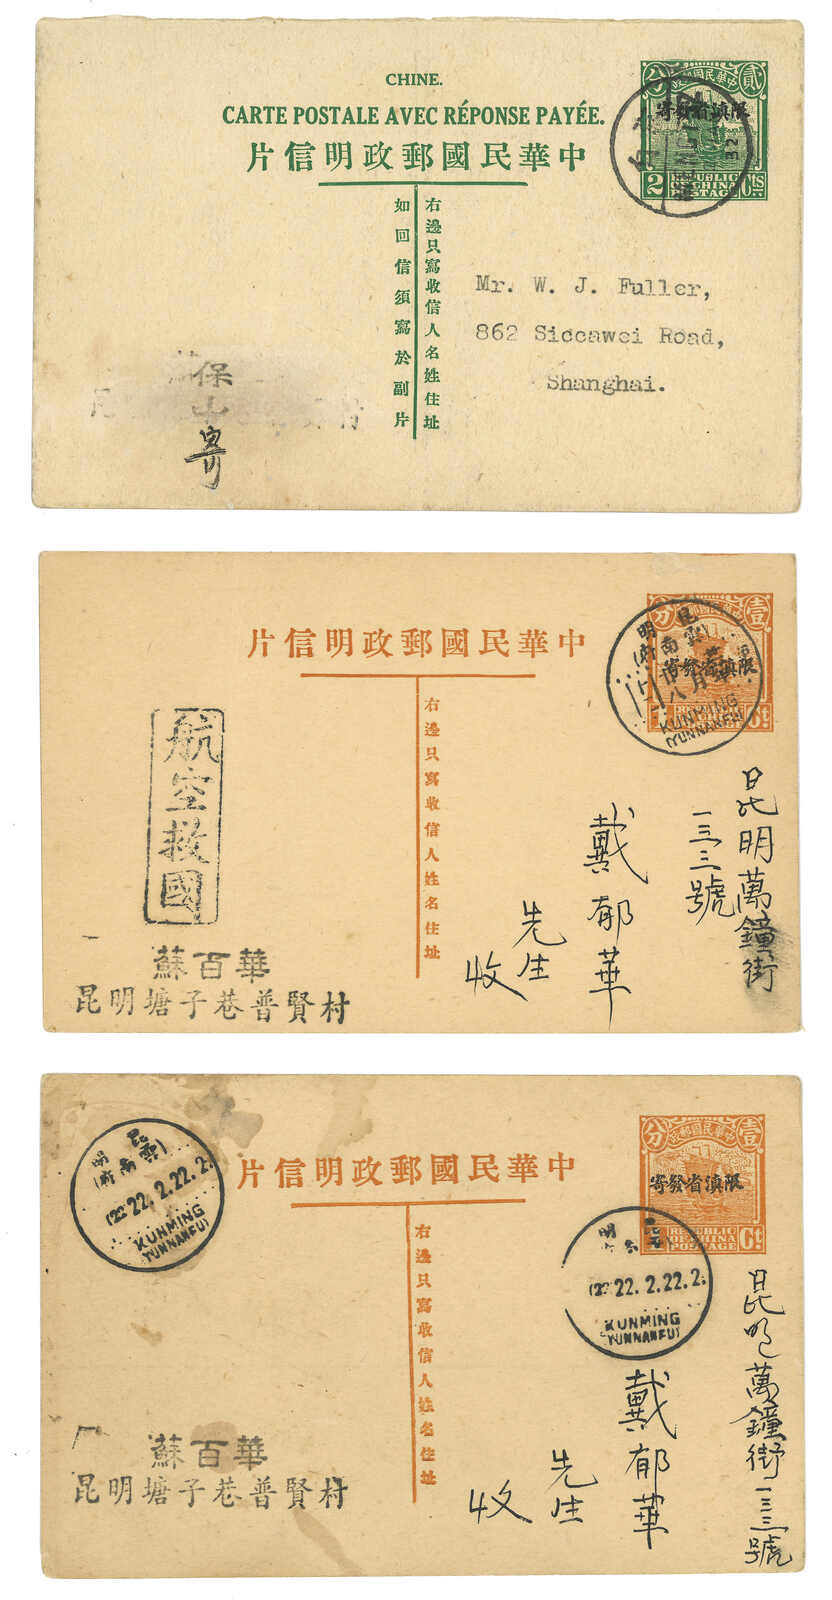 CHINE.
CARTE POSTALE AVEC RÉPONSE PAYÉE.
片信明政郵國民華中
分 中華民國郵政 貳
限滇省發寄
2 REPUBLIC OF CHINA POSTAGE Cts
32
右邊只寫收信人名姓住址
如回信須寫於副片
Mr. W. J. Fuller,
862 Siccawei Road,
Shanghai.
保山寄
片信明政郵國民華中
分 壹
限滇省發寄
Ct
昆明
(雲南府)
八月
KUNMING
(YUNNANFU)
右邊只寫收信人姓名住址
昆明萬鐘街
一三三號
戴郁華
先生
收
航空救國
蘇百華
昆明塘子巷普賢村
片信明政郵國民華中
分 中華民國郵政 壹
寄發省滇限
REPUBLIC OF CHINA POSTAGE Ct
昆明
(雲南府)
22.2.22.2
KUNMING
(YUNNANFU)
22.2.22.2
KUNMING
(YUNNANFU)
右邊只寫收信人姓名住址
昆明萬鐘街一三三號
戴郁華
先生
收
蘇百華
昆明塘子巷普賢村